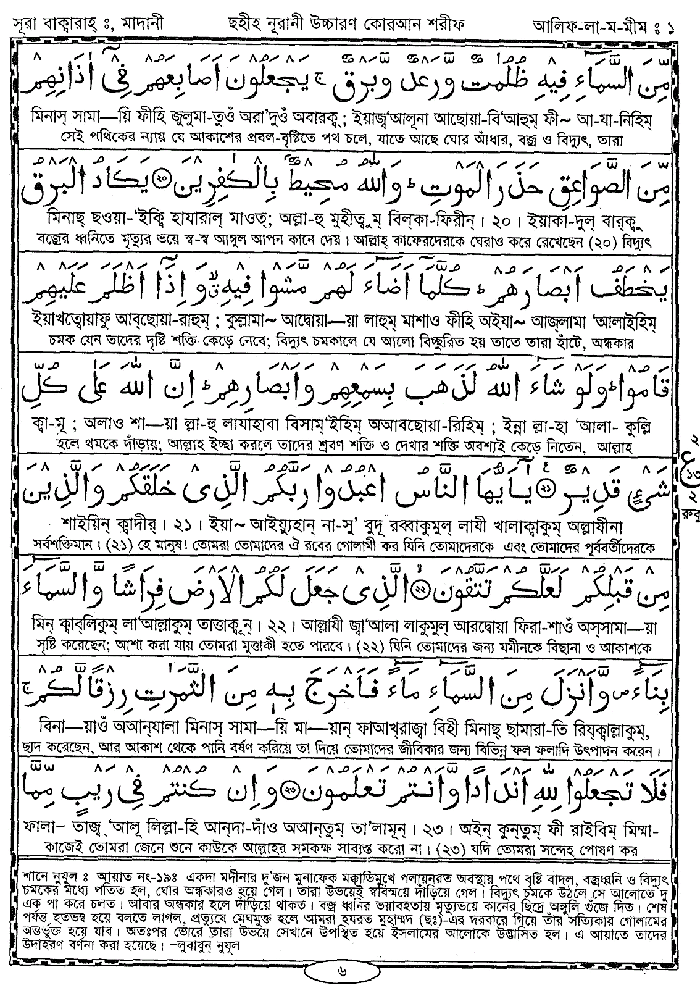 সূরা বাক্বারাহ্ ঃ, মাদানী ছহীহ নূরানী উচ্চারণ কোরআন শরীফ আলিফ-লা-ম-মীম ঃ ১
مِّنَ السَّمَآءِ فِيْهِ ظُلُمٰتٌ وَّرَعْدٌ وَّبَرْقٌ ۚ يَجْعَلُوْنَ اَصَابِعَهُمْ فِىْٓ اٰذَانِهِمْ
মিনাস্ সামা—য়ি ফীহি জুলুমা-তুওঁ অরা'দুওঁ অবারক্বু ; ইয়াজ্ব'আলূনা আছোয়া-বি'আহুম্ ফী~ আ-যা-নিহিম্
সেই পথিকের ন্যায় যে আকাশের প্রবল-বৃষ্টিতে পথ চলে, যাতে আছে ঘোর আঁধার, বজ্র ও বিদ্যুৎ, তারা
مِّنَ الصَّوَاعِقِ حَذَرَ الْمَوْتِ ؕ وَاللّٰهُ مُحِيْطٌۢ بِالْكٰفِرِيْنَ ﴿۲۰﴾ يَكَادُ الْبَرْقُ
মিনাছ্ ছওয়া-'ইক্বি হাযারাল্ মাওত্; অল্লা-হু মুহীত্বুম্ বিল্কা-ফিরীন্ । ২০। ইয়াকা-দুল্ বার্ক্বু
বজ্রের ধ্বনিতে মৃত্যুর ভয়ে স্ব-স্ব আঙ্গুল আপন কানে দেয়। আল্লাহ্ কাফেরদেরকে ঘেরাও করে রেখেছেন (২০) বিদ্যুৎ
يَخْطَفُ اَبْصَارَهُمْ ؕ كُلَّمَآ اَضَآءَ لَهُمْ مَّشَوْا فِيْهِ ۙ وَ اِذَآ اَظْلَمَ عَلَيْهِمْ
ইয়াখত্বোয়াফু আব্ছোয়া-রাহুম্ ; কুল্লামা~ আদ্বোয়া—য়া লাহুম্ মাশাও ফীহি অইযা~ আজ্লামা 'আলাইহিম্
চমক যেন তাদের দৃষ্টি শক্তি কেড়ে নেবে; বিদ্যুৎ চমকালে যে আলো বিচ্ছুরিত হয় তাতে তারা হাঁটে, অন্ধকার
قَامُوْا ؕ وَلَوْ شَآءَ اللّٰهُ لَذَهَبَ بِسَمْعِهِمْ وَاَبْصَارِهِمْ ؕ اِنَّ اللّٰهَ عَلٰى كُلِّ
ক্বা-মূ ; অলাও শা—য়া ল্লা-হু লাযাহাবা বিসাম্'ইহিম্ অআবছোয়া-রিহিম্ ; ইন্না ল্লা-হা 'আলা- কুল্লি
হলে থমকে দাঁড়ায়; আল্লাহ্ ইচ্ছা করলে তাদের শ্রবণ শক্তি ও দেখার শক্তি অবশ্যই কেড়ে নিতেন, আল্লাহ
২
ع
১৩
২
রুকূ
شَىْءٍ قَدِيْرٌ ﴿۲۱﴾ يٰۤاَيُّهَا النَّاسُ اعْبُدُوْا رَبَّكُمُ الَّذِىْ خَلَقَكُمْ وَالَّذِيْنَ
শাইয়িন্ ক্বাদীর্ । ২১। ইয়া~ আইয়্যুহান্ না-সু' বুদূ রব্বাকুমুল্ লাযী খালাক্বাকুম্ অল্লাযীনা
সর্বশক্তিমান। (২১) হে মানুষ! তোমরা তোমাদের ঐ রবের গোলামী কর যিনি তোমাদেরকে এবং তোমাদের পূর্ববর্তীদেরকে
مِنْ قَبْلِكُمْ لَعَلَّكُمْ تَتَّقُوْنَ ﴿۲۲﴾ الَّذِىْ جَعَلَ لَكُمُ الْاَرْضَ فِرَاشًا وَّالسَّمَآءَ
মিন্ ক্বাব্লিকুম্ লা'আল্লাকুম্ তাত্তাক্বূন্ । ২২। আল্লাযী জ্বা'আলা লাকুমুল্ আরদ্বোয়া ফিরা-শাওঁ অস্সামা—য়া
সৃষ্টি করেছেন; আশা করা যায় তোমরা মুত্তাকী হতে পারবে। (২২) যিনি তোমাদের জন্য যমীনকে বিছানা ও আকাশকে
بِنَآءً ۪ وَّاَنْزَلَ مِنَ السَّمَآءِ مَآءً فَاَخْرَجَ بِهٖ مِنَ الثَّمَرٰتِ رِزْقًا لَّكُمْ ۚ
বিনা—য়াওঁ অআন্যালা মিনাস্ সামা—য়ি মা—য়ান্ ফাআখ্রাজ্বা বিহী মিনাছ্ ছামারা-তি রিয্ক্বাল্লাকুম্,
ছাদ করেছেন, আর আকাশ থেকে পানি বর্ষণ করিয়ে তা দিয়ে তোমাদের জীবিকার জন্য বিভিন্ন ফল ফলাদি উৎপাদন করেন।
فَلَا تَجْعَلُوْا لِلّٰهِ اَنْدَادًا وَّاَنْتُمْ تَعْلَمُوْنَ ﴿۲۳﴾ وَاِنْ كُنْتُمْ فِىْ رَيْبٍ مِّمَّا
ফালা- তাজ্ব্ 'আলূ লিল্লা-হি আন্দা-দাঁও অআন্তুম্ তা'লামূন্ । ২৩। অইন্ কুন্তুম্ ফী রাইবিম্ মিম্মা-
কাজেই তোমরা জেনে শুনে কাউকে আল্লাহর সমকক্ষ সাব্যস্ত করো না। (২৩) যদি তোমরা সন্দেহ পোষণ কর
শানে নুযূল ঃ আয়াত নং-১৯ঃ একদা মদীনার দু'জন মুনাফেক মক্কাভিমুখে পলায়নরত অবস্থায় পথে বৃষ্টি বাদল, বজ্রধ্বনি ও বিদ্যুৎ
চমকের মধ্যে পতিত হল, ঘোর অন্ধকারও হয়ে গেল। তারা উভয়েই সবিস্ময়ে দাঁড়িয়ে গেল। বিদ্যুৎ চমকে উঠলে সে আলোতে দু
এক পা করে চলত। আবার অন্ধকার হলে দাঁড়িয়ে থাকত। বজ্র ধ্বনির ভয়াবহতায় মৃত্যুভয়ে কানের ছিদ্রে অঙ্গুলি গুঁজে দিত। শেষ
পর্যন্ত হতভম্ব হয়ে বলতে লাগল, প্রত্যুষে মেঘমুক্ত হলে আমরা হযরত মুহাম্মদ (ছঃ)-এর দরবারে গিয়ে তাঁর সত্যিকার গোলামের
অন্তর্ভুক্ত হয়ে যাব। অতঃপর ভোরে তারা উভয়ে সেখানে উপস্থিত হয়ে ইসলামের আলোকে উদ্ভাসিত হল। এ আয়াতে তাদের
উদাহরণ বর্ণনা করা হয়েছে। –লুবাবুন নুযূল
৬